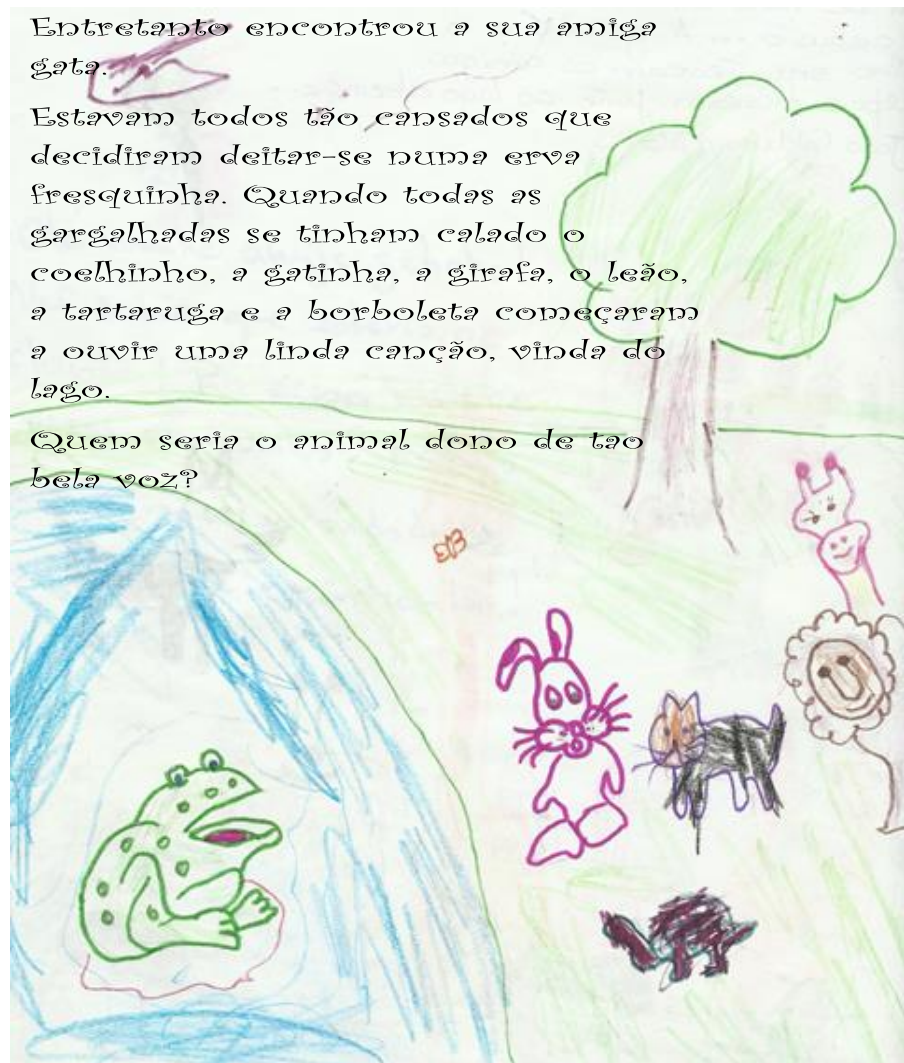 Entretanto encontrou a sua amiga
gata.
Estavam todos tão cansados que
decidiram deitar-se numa erva
fresquinha. Quando todas as
gargalhadas se tinham calado o
coelhinho, a gatinha, a girafa, o leão,
a tartaruga e a borboleta começaram
a ouvir uma linda canção, vinda do
lago.
Quem seria o animal dono de tao
bela voz?